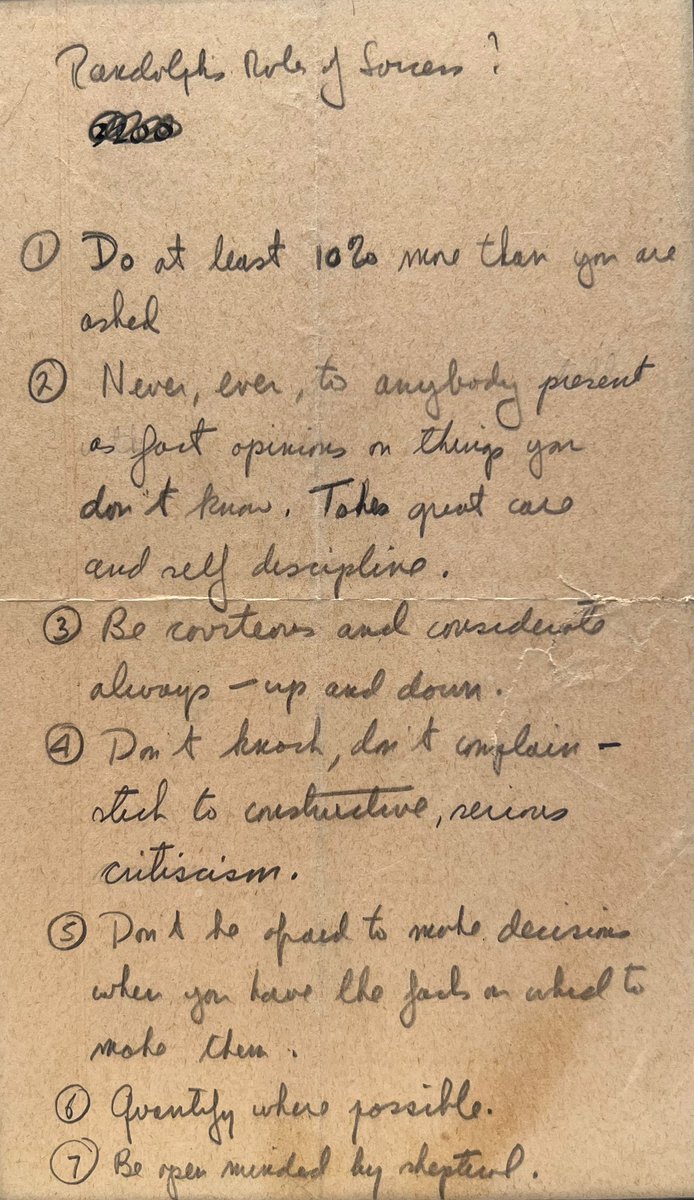 Randolph's Rules of Success?
① Do at least 10% more than you are
asked
② Never, ever, to anybody present
as fact opinions on things you
don't know. Takes great care
and self discipline.
③ Be courteous and considerate
always – up and down.
④ Don't knock, don't complain –
stick to constructive, serious
critiscism.
⑤ Don't be afraid to make decisions
when you have the facts on which to
make them.
⑥ Quantify where possible.
⑦ Be open minded by skeptical.